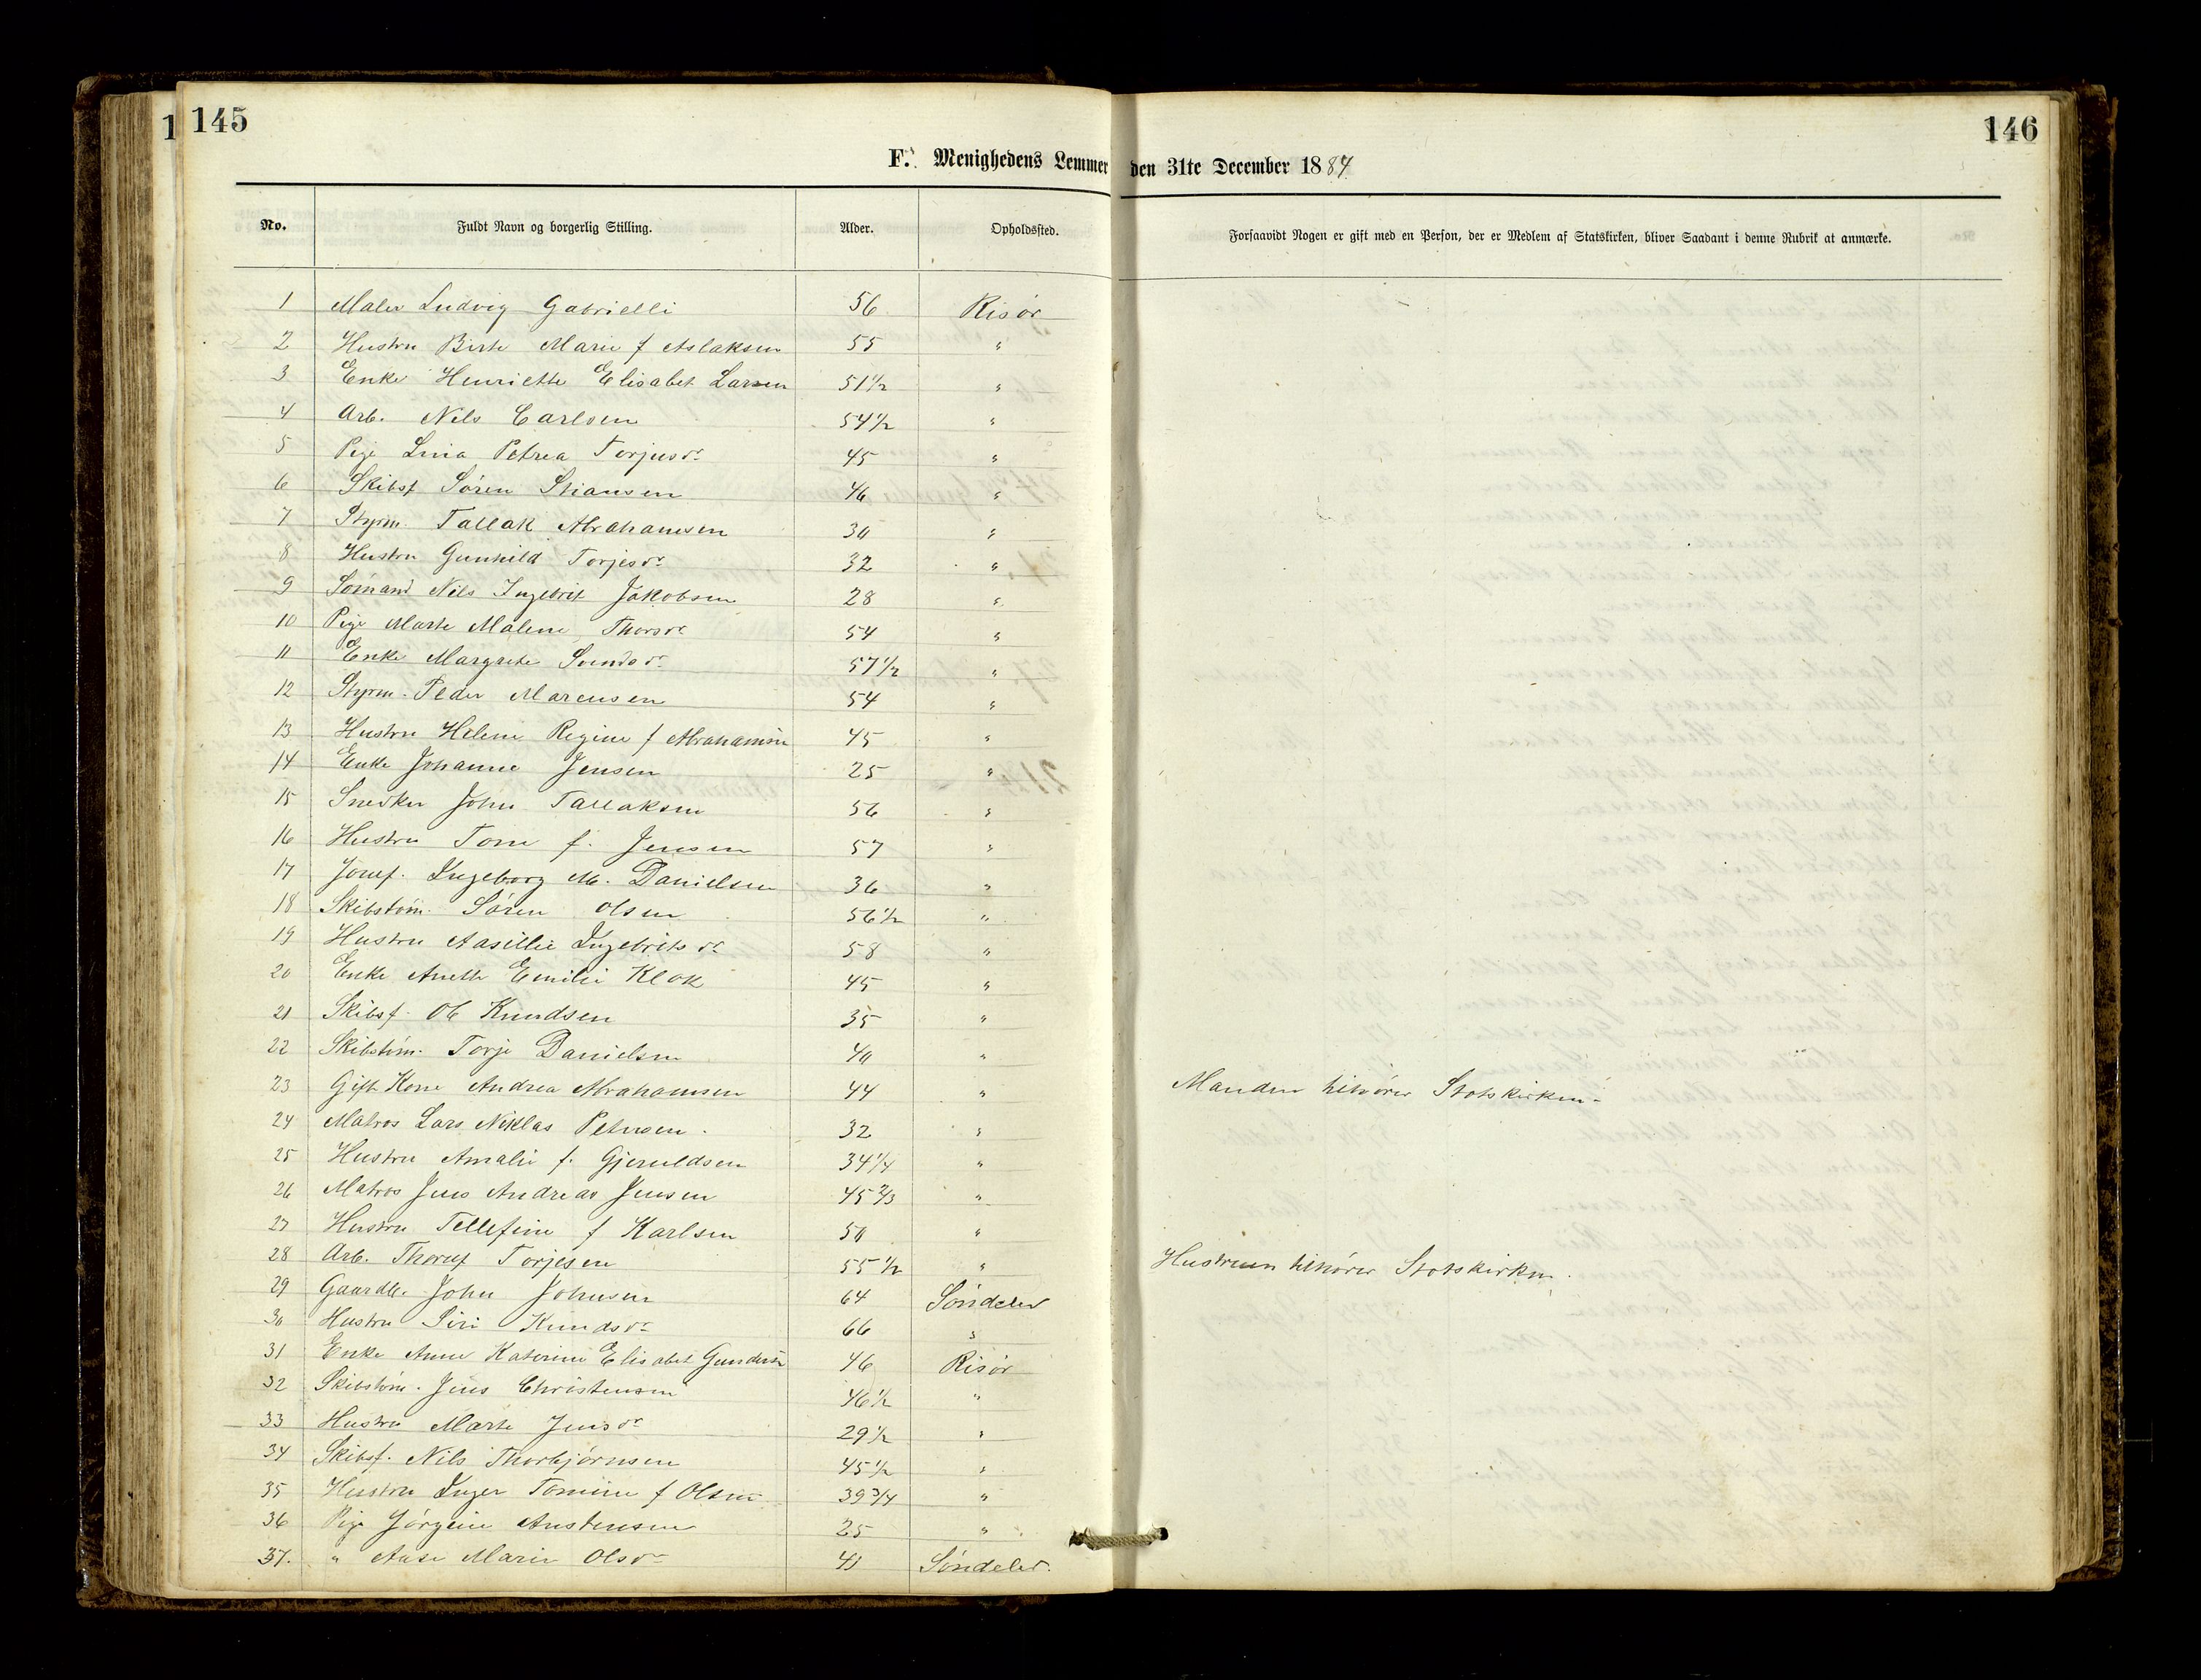 1 145
146
F. Menighedens Lemmer den 31te December 1884
No. Fuldt Navn og borgerlig Stilling. Alder. Opholdssted. Forsaavidt Nogen er gift med en Person, der er Medlem af Statskirken, bliver Saadant i denne Rubrik at anmærke.
1 Maler Ludvig Gabrielli 56 Risør
2 Hustru Birte Marie f Aslaksen 55 "
3 Enke Henriette Elisabet Larsen 51 1/2 "
4 Arb. Nils Carlsen 54 1/2 "
5 Pige Lina Petrea Torjusdr 45 "
6 Skibsf Søren Stiansen 46 "
7 Styrm. Tallak Abrahamsen 30 "
8 Hustru Gunhild Torjesdr 32 "
9 Sømand Nils Ingebrit Jakobsen 28 "
10 Pige Marte Malene Thorsdr 54 "
11 Enke Margrete Svendsdr 57 1/2 "
12 Styrm. Peder Marcusen 54 "
13 Hustru Helene Regine f Abrahamsen 45 "
14 Enke Johanne Jensen 25 "
15 Snedker John Tallaksen 56 "
16 Hustru Tone f. Jensen 57 "
17 Jomf. Ingeborg M. Danielsen 36 "
18 Skibstøm. Søren Olsen 56 1/2 "
19 Hustru Aasillie Ingebritsdr 58 "
20 Enke Anette Emilie Klok 45 "
21 Skibsf. Ole Knudsen 35 "
22 Skibstøm. Torje Danielsen 40 "
23 Gift Kone Andrea Abrahamsen 44 " Manden tilhører Statskirken.
24 Matros Lars Niklas Petersen. 32 "
25 Hustru Amalie f. Gjeruldsen 34 1/4 "
26 Matros Jens Andreas Jensen 45 2/3 "
27 Hustru Tellefine f Karlsen 50 "
28 Arb. Thoruf Torjesen 55 1/2 " Hustruen tilhører Statskirken.
29 Gaardb. John Johnsen 64 Søndeled
30 Hustru Siri Knudsdr 66 "
31 Enke Anne Katerine Elisabet Gundersen 46 Risør
32 Skibstøm. Jens Christensen 46 1/2 "
33 Hustru Marte Jensdr 29 1/2 "
34 Skibsf. Nils Thorbjørnsen 45 1/2 "
35 Hustru Inger Tomine f Olsen 39 3/4 "
36 Pige Jørgine Austensen 25 "
37. " Aase Marie Olsdr Søndeled.